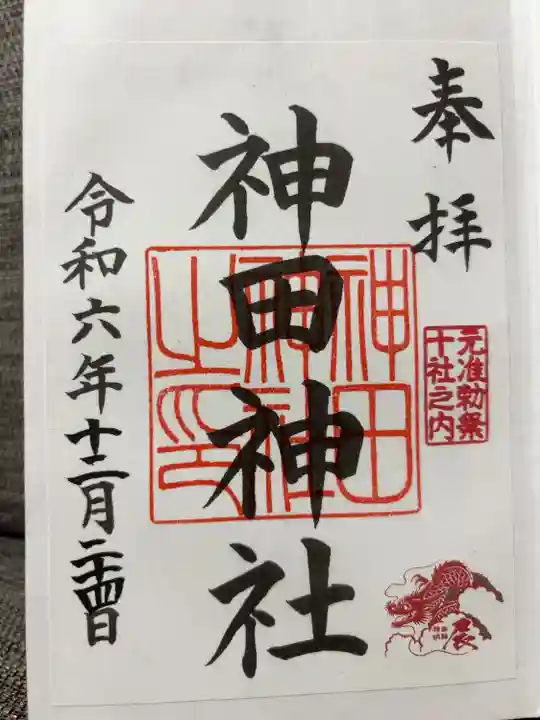 奉拝
元准勅祭
十社之内
神田神社
神田
神社
之印
辰
令和六年十二月二十四日